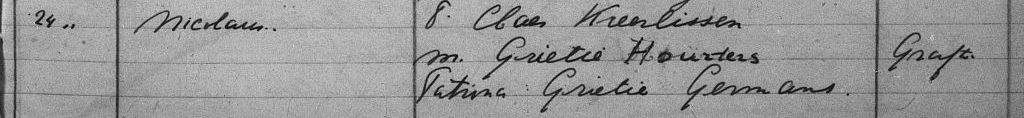 24 „ Nicolaus. P. Claes Kreelissen
m. Grietie Houters Graft.
Patrina Grietie Germans.